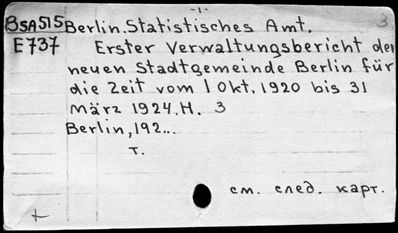 -1-
3
BSA515 Berlin. Statistisches Amt.
E737 Erster Verwaltungsbericht der
neuen Stadtgemeinde Berlin für
die Zeit vom 1 Okt. 1920 bis 31
März 1924. H. 3
Berlin, 192...
т.
см. след. карт.